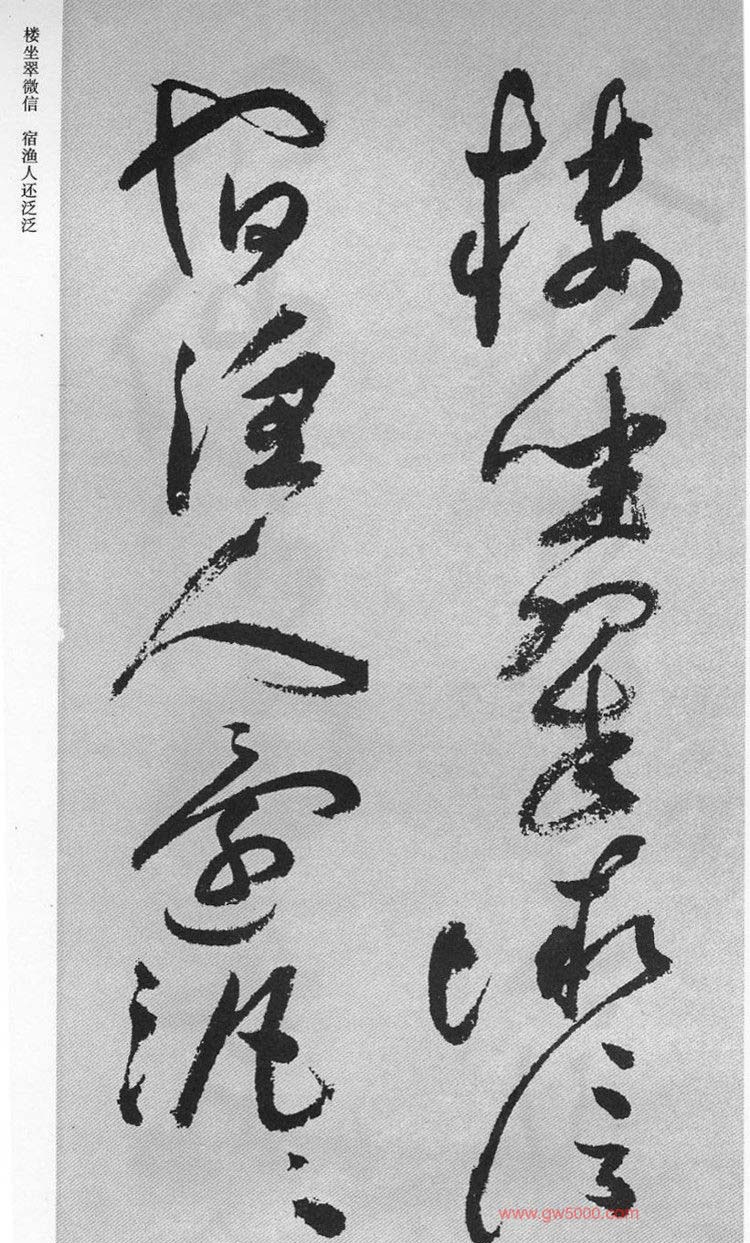 樓坐翠微信
宿漁人還泛〻
楼坐翠微信 宿渔人还泛泛
www.gw5000.com